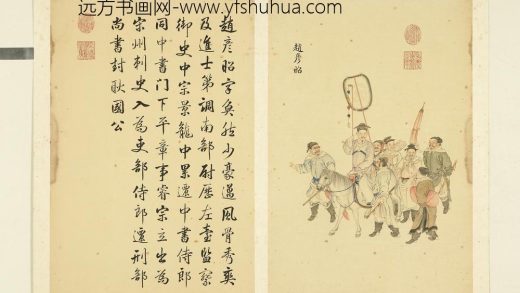 远方书画网-www.yfshuhua.com
趙彦昭
趙彦昭字奐然少豪邁風骨秀爽
及進士第調南部尉歷左臺監察
御史中宗景龍中累遷中書侍郎
同中書門下平章事睿宗立出為
宋州刺史入為吏部侍郎遷刑部
尚書封耿國公